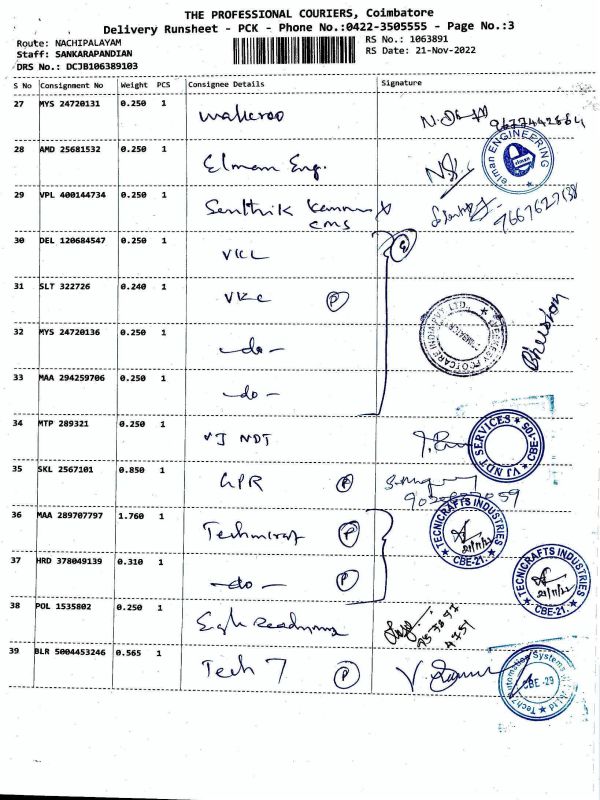 THE PROFESSIONAL COURIERS, Coimbatore
Delivery Runsheet - PCK - Phone No.:0422-3505555 - Page No.:3
Route: NACHIPALAYAM
RS No.: 1063891
Staff: SANKARAPANDIAN
RS Date: 21-Nov-2022
DRS No.: DCJB106389103
S No Consignment No Weight PCS Consignee Details Signature
27 MYS 24720131 0.250 1
28 AMD 25681532 0.250 1 Elman Eng.
elman ENGINEERING
elman
29 VPL 400144734 0.250 1 Senthik
cms
7667627138
30 DEL 120684547 0.250 1 VKC
31 SLT 322726 0.240 1 VKC P
32 MYS 24720136 0.250 1 -do-
33 MAA 294259706 0.250 1 -do-
34 MTP 289321 0.250 1 VJ NDT
VJ NDT SERVICES CBE-105
35 SKL 2567101 0.850 1 GPR P
36 MAA 289707797 1.760 1 P
TECNICRAFTS INDUSTRIES
21/11/22
CBE-21.
37 HRD 378049139 0.310 1 -do- P
TECNICRAFTS INDUSTRIES
21/11/22
CBE-21.
38 POL 1535802 0.250 1
39 BLR 5004453246 0.565 1 Tech 7 P
Tech7 Automation Systems
CBE -29